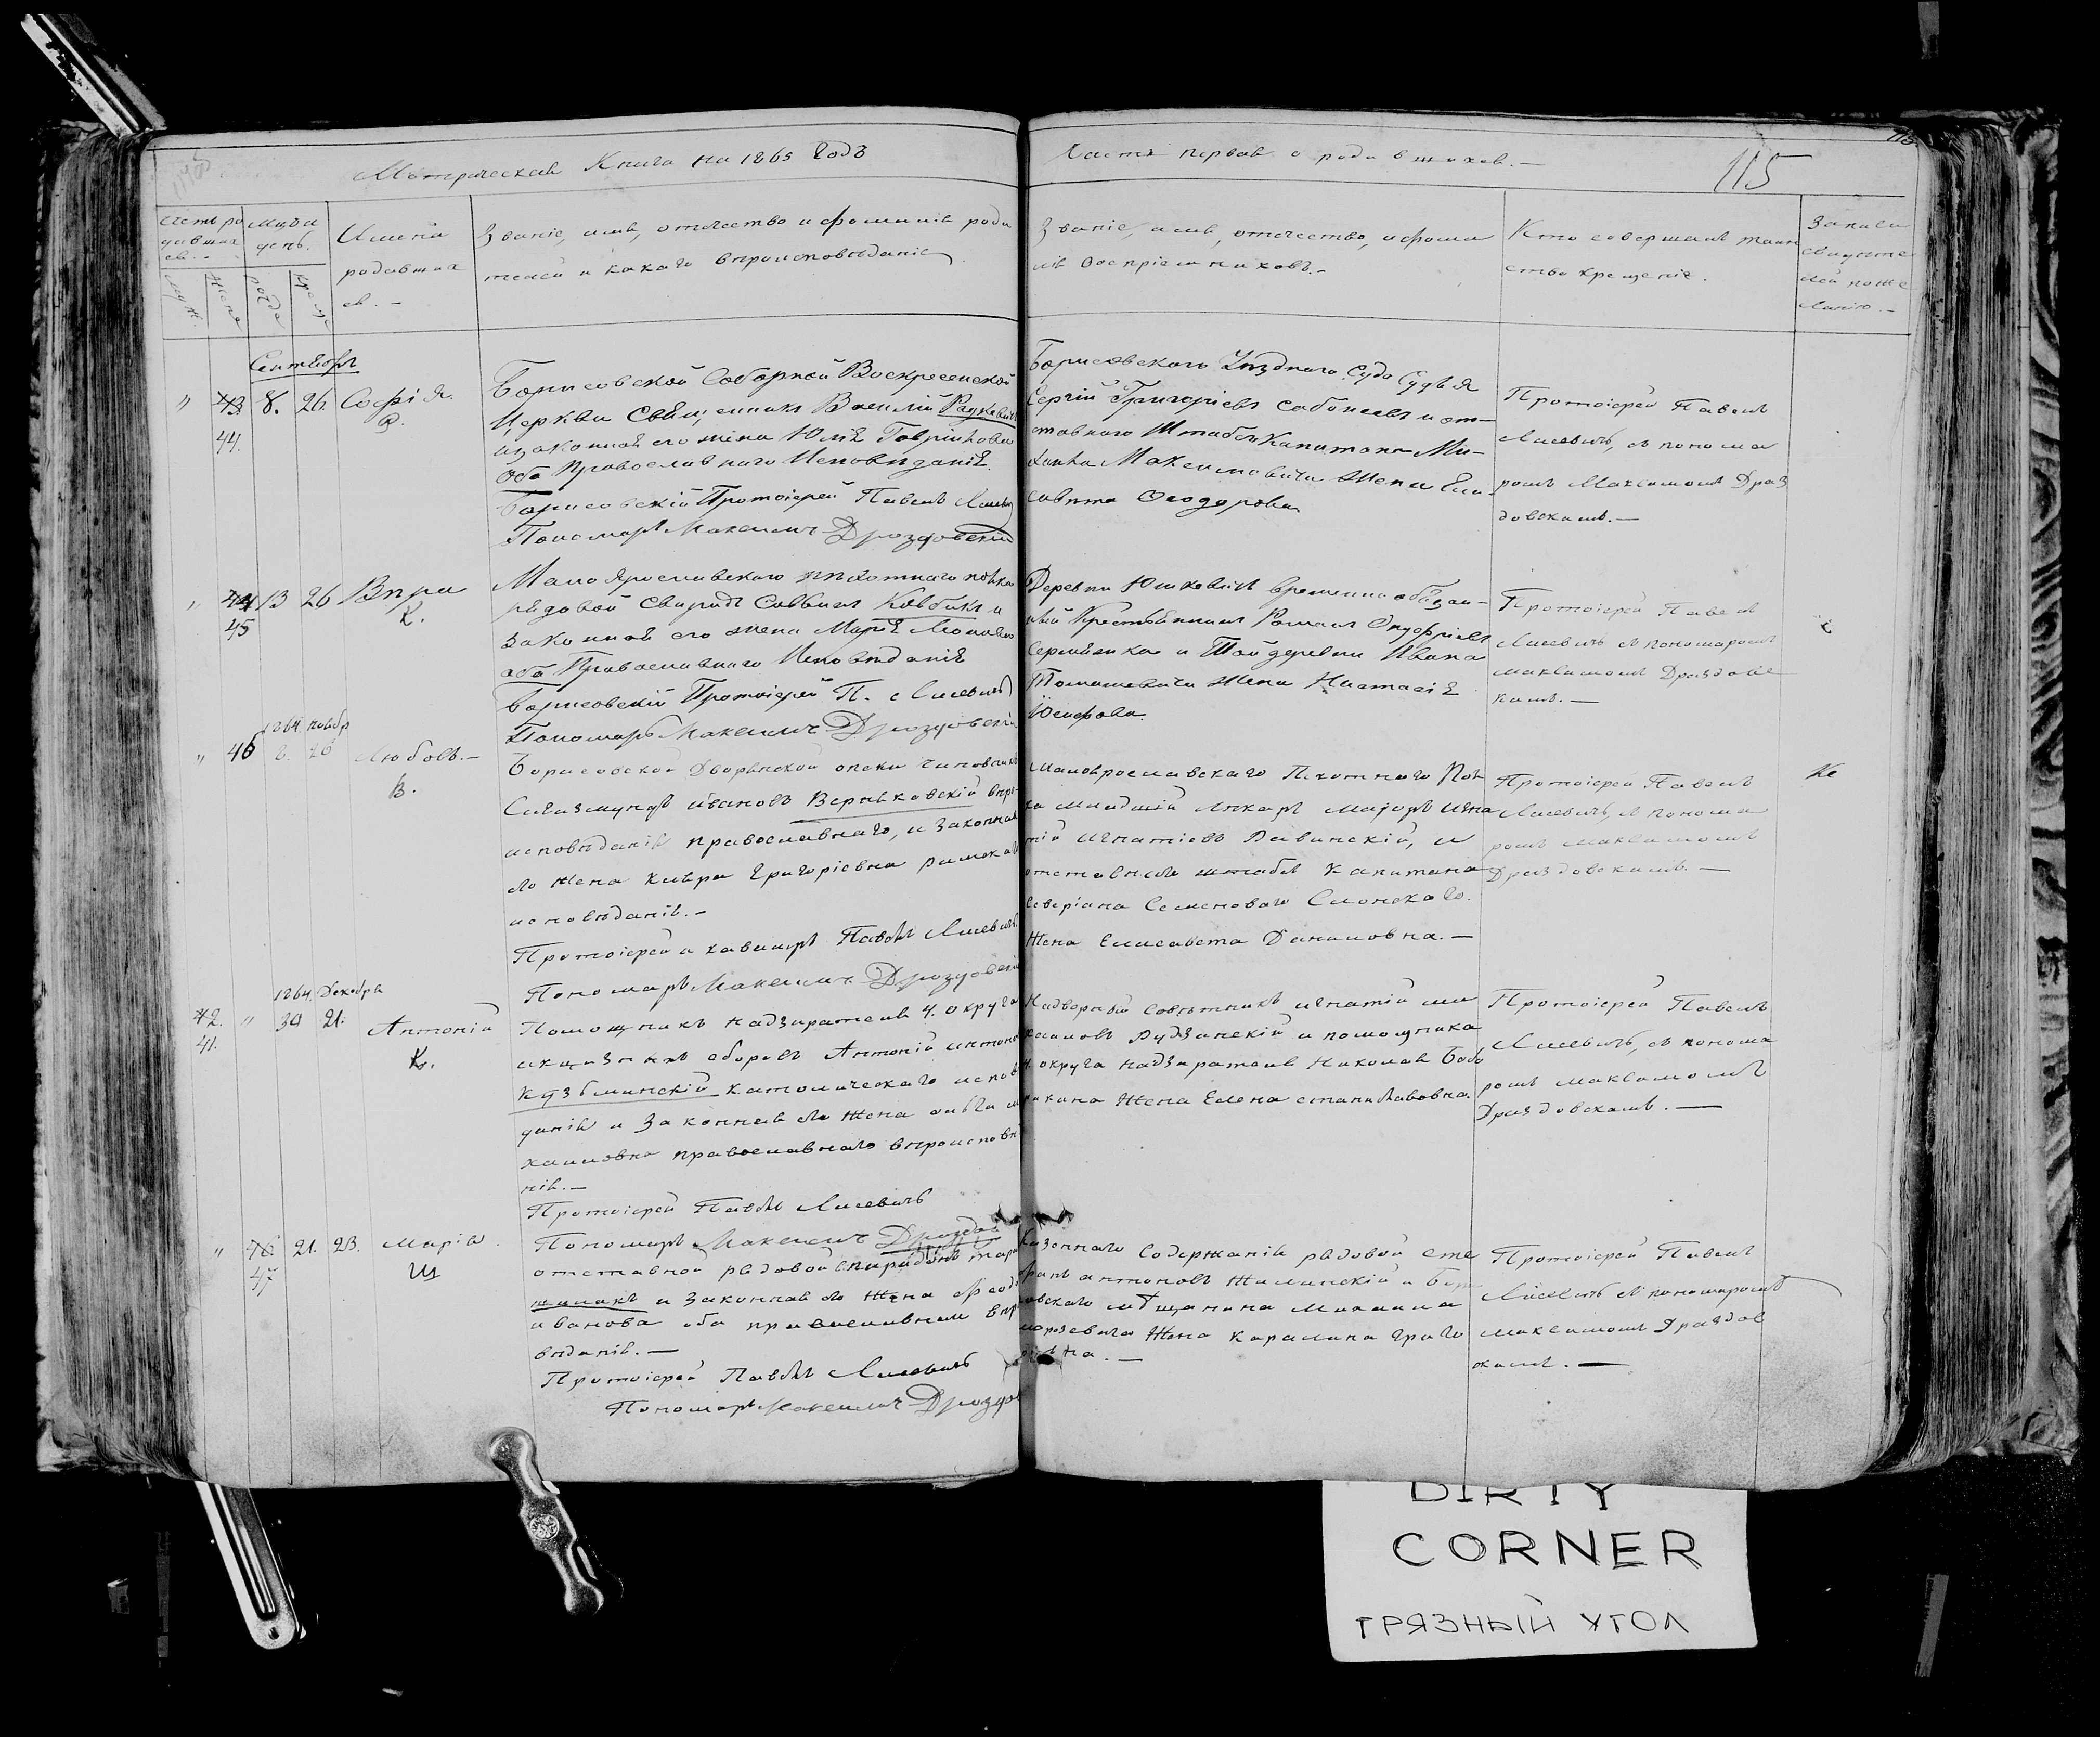 Метрическая Книга на 1865 годъ
Часть первая о родившихся. —
115
Счетъ ро
дивших
ся. —
Мцъ и
день.
Имена
родивших
ся. —
Званіе, имя, отчество и фамилія роди
телей и какого вѣроисповѣданія
Званіе, имя, отчество, и фами
лія воспріемниковъ. —
Кто совершалъ таин
ство крещенія.
Запись
свидѣте
лей по же
ланію. —
Сентябрь
" 43 8. 26. Софія.
44. Р.
Борисовской Соборной Воскресенской
Церкви Священникъ Василій
изаконная его жена Юлія
Оба Православнаго Исповѣданія.
Борисовскій Протоіерей Павелъ
Пономарь Максимъ Дроздовскій
Борисовскаго Уѣзднаго Суда Судья
Сергій Григоріевъ и от-
ставнаго Штабсъ Капитана Ми-
Максимовича Жена Ели-
савета Ѳеодорова
Протоіерей Павелъ
Лисевичъ, съ понома
ремъ Максимомъ Дроз
довскимъ. —
" 44 13 26 Вѣра
45 К.
Малоярославскаго пѣхотнаго полка
рядовой Свиридъ Саввинъ и
законная его жена Марія
оба Православнаго Исповѣданія
Борисовскій Протоіерей П. Лисевичъ
Пономарь Максимъ Дроздовскій
Деревни Юшкевичъ временно обязан-
ный Крестьянинъ Романъ Онуфріевъ
и Той деревни Ивана
Томашевича Жена Настасія
Юсифова.
Протоіерей Павелъ
Лисевичъ съ пономаремъ
максимомъ Дроздовс
кимъ. —
1864 ноябр
" 46 6. 20 Любовь. —
В.
Борисовской Дворянской опеки чиновникъ
Сигизмундъ ивановъ Верниковскій вѣро-
исповѣданія православнаго, и законная
его жена Григоріевна римскаго
исповѣданія. —
Протоіерей и кавалеръ Павелъ Лисевичъ.
Пономарь Максимъ Дроздовскій
Малоярославскаго Пѣхотнаго Пол
ка младшій лекарь Игна
тій игнатіевъ и
отставнаго штабсъ Капитана
Северіана Семеноваго Слонскаго.
Жена Елисавета Даниловна. —
Протоіерей Павелъ
Лисевичъ, съ понома
ремъ максимомъ
Дроздовскимъ. —
1864 Декабря
42. " 30 21. Антоній
41. К.
Помощникъ надзирателя 4. округа
акцизныхъ сборовъ Антоній антоно
Кузьминскій католическаго исповѣ
данія и Законная его жена ольга ми
хаиловна православнаго вѣроисповѣда
нія. —
Протоіерей Павелъ Лисевичъ
Пономарь Максимъ Дроздов
Надворный Совѣтникъ игнатій ми
хаиловъ Рудзинскій и помощника
4 округа надзирателя Николая
Жена Елена станиславовна.
Протоіерей Павелъ
Лисевичъ, съ понома
ремъ максимомъ
Дроздовскимъ. —
" 46 21. 23. Марія.
47 Щ
отставной рядовой
и Законная его Жена
иванова оба православнаго вѣроиспо
вѣданія. —
Протоіерей Павелъ Лисевичъ
Пономарь Максимъ Дроздов
Казеннаго содержанія рядовой сте
фанъ антоновъ Жилинскій и Бори
совскаго мѣщанина михаила
Жена Каралина Григо
рьевна. —
Протоіерей Павелъ
Лисевичъ съ пономаремъ
максимомъ Дроздов
скимъ. —
DIRTY
CORNER
ГРЯЗНЫЙ УГОЛ